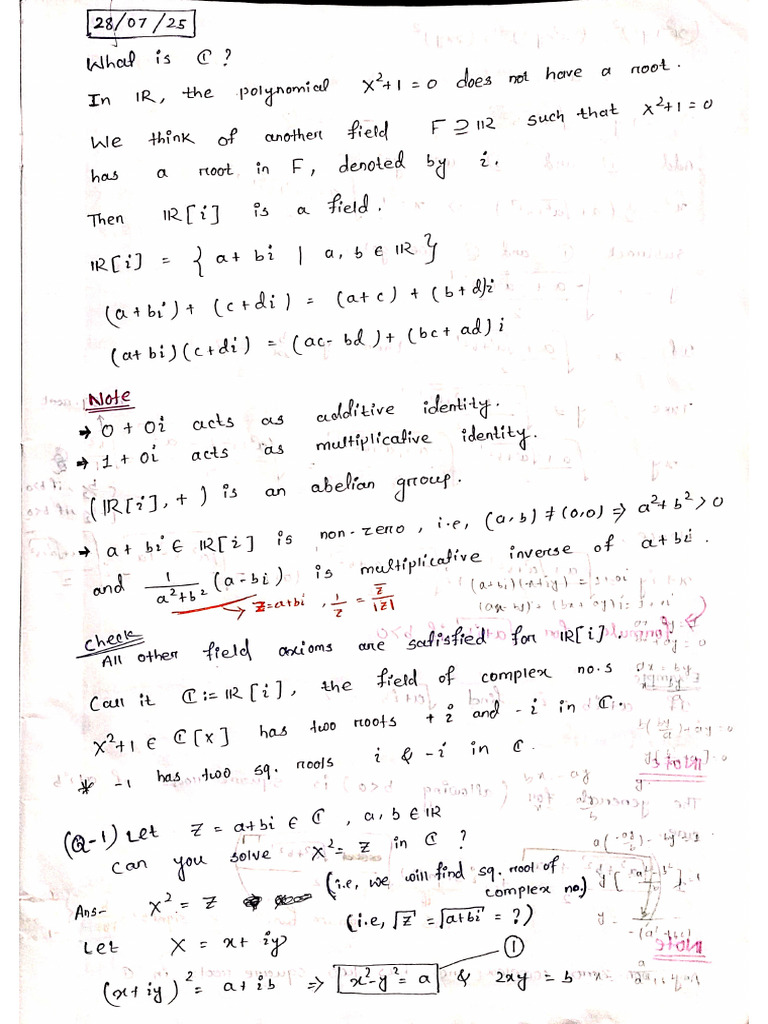 28/07/25
What is ℂ?
In ℝ, the polynomial X²+1=0 does not have a root.
We think of another field F ⊇ ℝ such that X²+1=0
has a root in F, denoted by i.
Then ℝ[i] is a field.
ℝ[i] = { a+bi | a, b ∈ ℝ }
(a+bi) + (c+di) = (a+c) + (b+d)i
(a+bi)(c+di) = (ac-bd) + (bc+ad)i
Note
→ 0+0i acts as additive identity.
→ 1+0i acts as multiplicative identity.
(ℝ[i], +) is an abelian group.
→ a+bi ∈ ℝ[i] is non-zero, i.e, (a,b) ≠ (0,0) ⇒ a²+b²>0
and 1/(a²+b²) (a-bi) is multiplicative inverse of a+bi.
→ z=a+bi, 1/z = z̅/|z|
Check
All other field axioms are satisfied for ℝ[i].
Call it ℂ := ℝ[i], the field of complex no.s
X²+1 ∈ ℂ[x] has two roots +i and -i in ℂ.
* -1 has two sq. roots i & -i in ℂ.
(Q-1) Let z = a+bi ∈ ℂ, a, b ∈ ℝ
can you solve X² = z in ℂ?
(i.e, we will find sq. root of
complex no.)
Ans- X² = z
(i.e, √z = √a+bi = ?)
Let X = x+iy
①
(x+iy)² = a+ib ⇒ x²-y² = a & 2xy = b